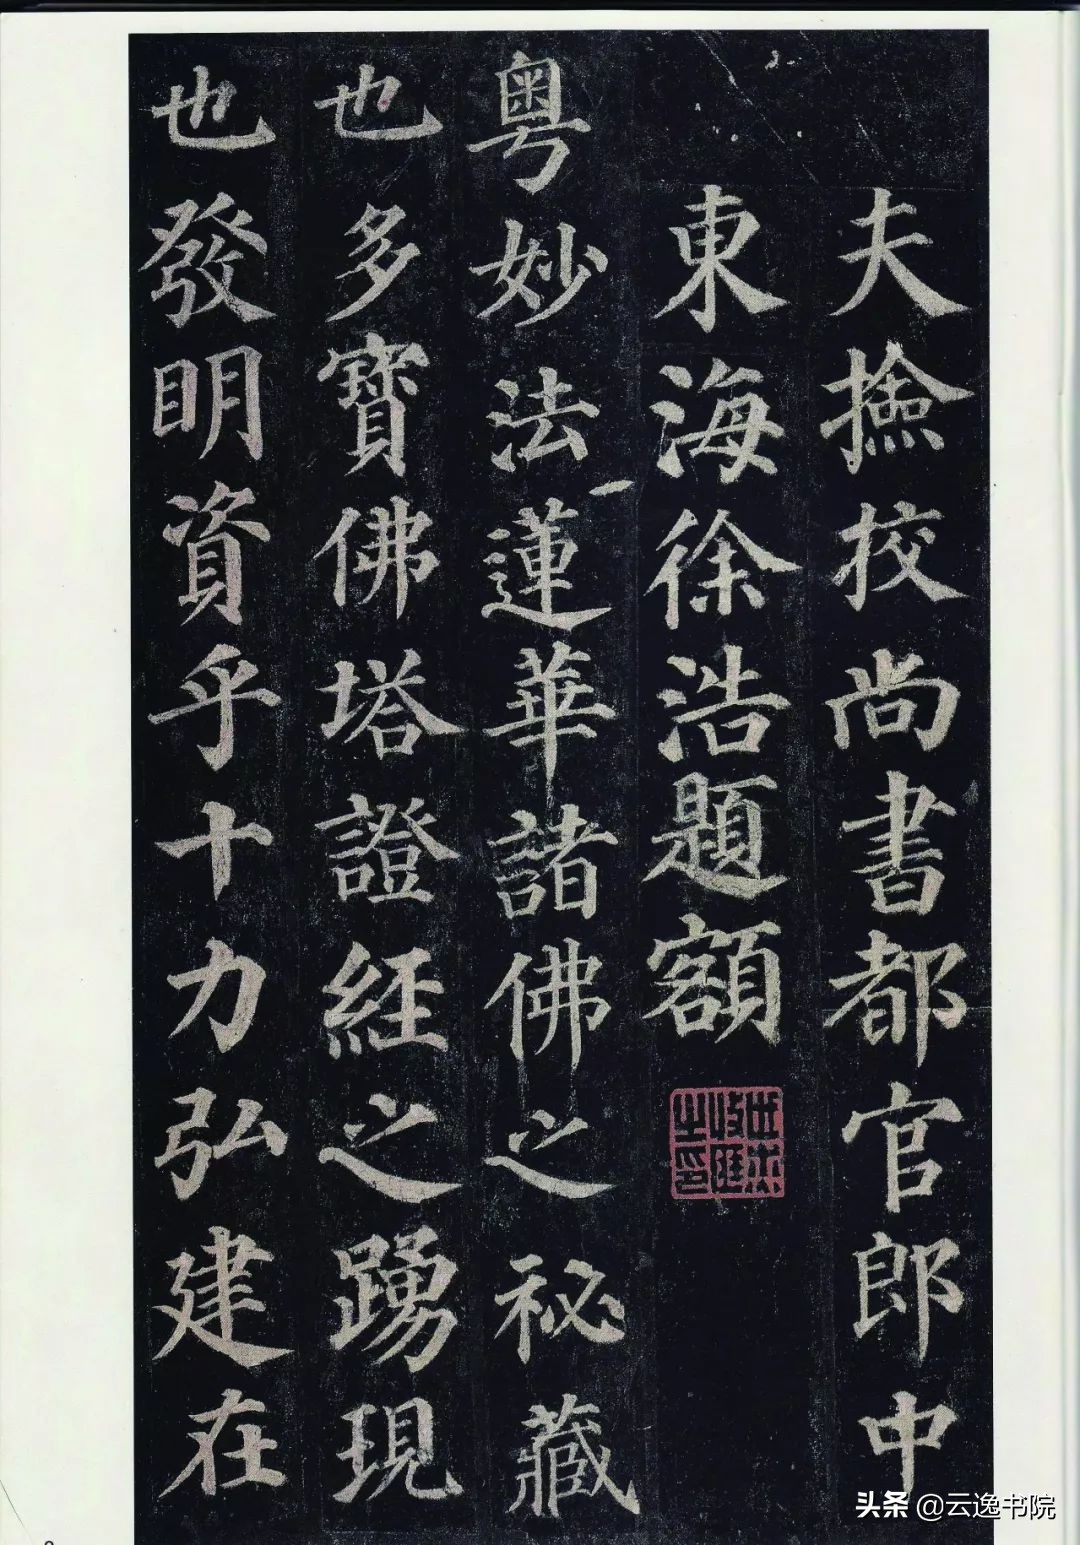 夫撿挍尚書都官郎中
東海徐浩題額
粵妙法蓮華諸佛之秘藏
也多寶佛塔證經之踴現
也發明資乎十力弘建在
头条 @云逸书院